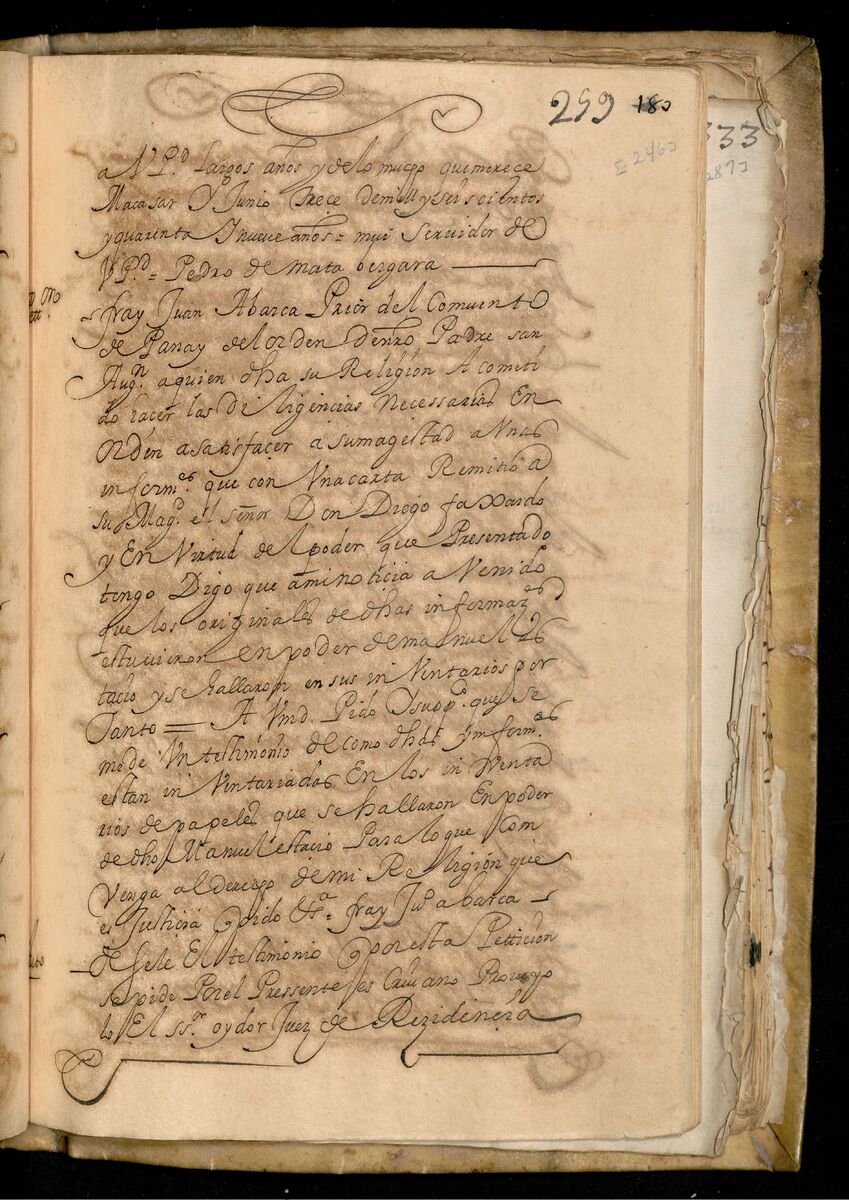 299 180
[246]
333
289]
a VP.d largos años y de lo mucho que merece
Macasar y Junio trece de mill y seiscientos
y quarenta y nueve años = mui servidor de
VP.d = Pedro de mata bergara
fray Juan Abarca Prior del Comvento
de Panay del orden de nro Padre san
Aug.n a quien dha su Religion A cometi
do hacer las diligencias necessarias En
orden a satisfacer a su magestad a Unos
inform.es que con Una carta Remitio a
su Mag.d el señor Don Diego faxardo
y En Virtud del poder que Presentado
tengo Digo que a mi noticia a Venido
que los originales de dhas informaz.es
estuvieron en poder de manuel es
tacio y se hallaron en sus inventarios por
Tanto = A Vmd. Pido y supp.co que se
me de Un testimonio de como dhas ynform.es
estan inventariadas En los inventa
rios de papeles que se hallaron En poder
de dho Manuel estacio Para lo que Com
Venga al derecho de mi Religion que
es Justicia q pido &.a fray Ju.o abarca
Desele El testimonio q por esta Petticion
se pide Por el Pressente escrivano Proveyo
lo El ss.or oydor Juez de Rezidencia